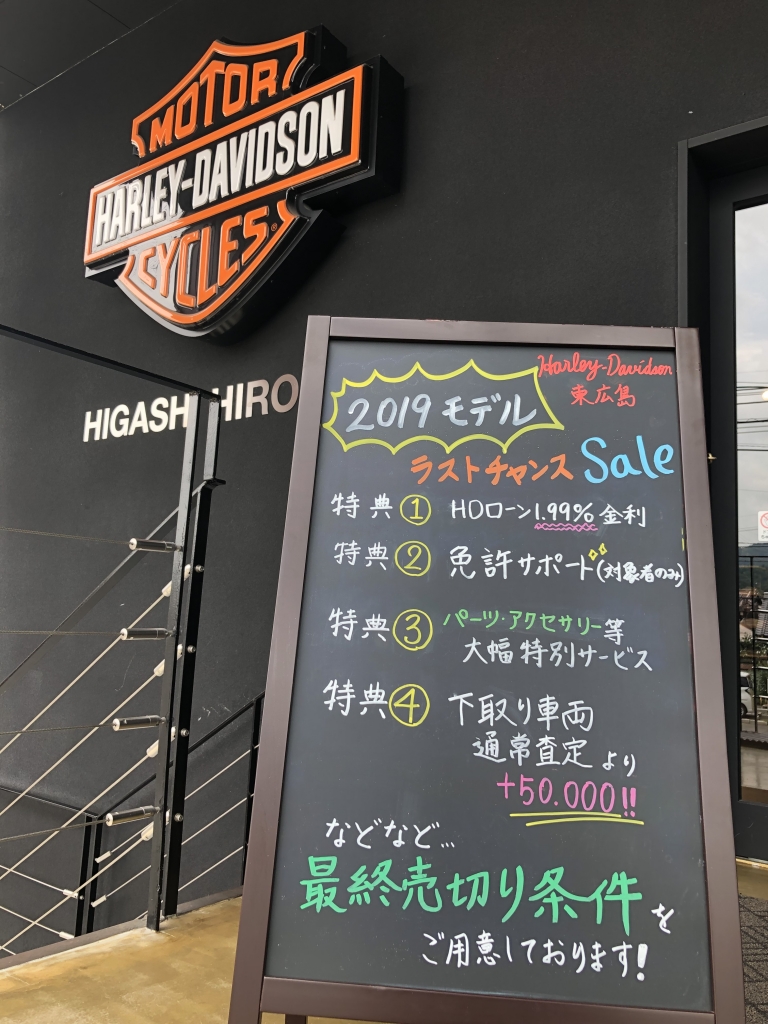 MOTOR
HARLEY-DAVIDSON
CYCLES
HIGASHIHIRO
Harley-Davidson
東広島
2019 モデル
ラストチャンス Sale
特典① HDローン1.99% 金利
特典② 免許サポート(対象者のみ)
特典③ パーツ・アクセサリー等
大幅 特別サービス
特典④ 下取り車両
通常査定より
+50.000!!
などなど...
最終売切り条件を
ご用意しております!